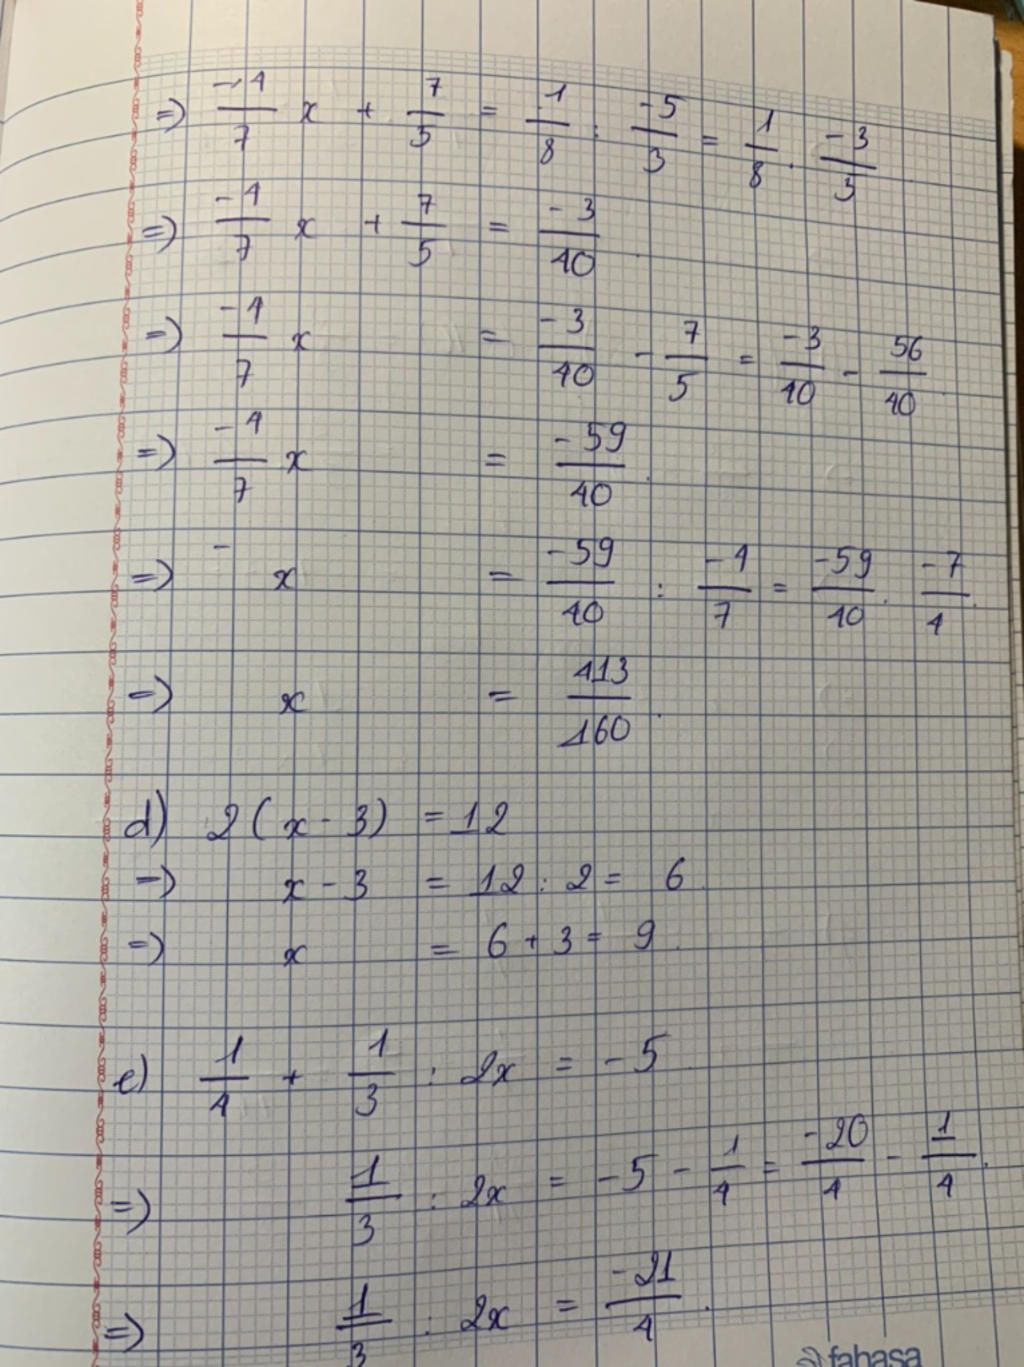 =) -4/7 x + 7/5 = 1/8 : -5/3 = 1/8 . -3/5
=) -4/7 x + 7/5 = -3/40
=) -4/7 x = -3/40 - 7/5 = -3/40 - 56/40
=) -4/7 x = -59/40
=) - x = -59/40 : -4/7 = -59/40 . -7/4
=) x = 413/160
d) 2(x - 3) = 12
=) x - 3 = 12 : 2 = 6
=) x = 6 + 3 = 9
e) 1/4 + 1/3 : 2x = -5
=) 1/3 : 2x = -5 - 1/4 = -20/4 - 1/4
=) 1/3 : 2x = -21/4
fahasa